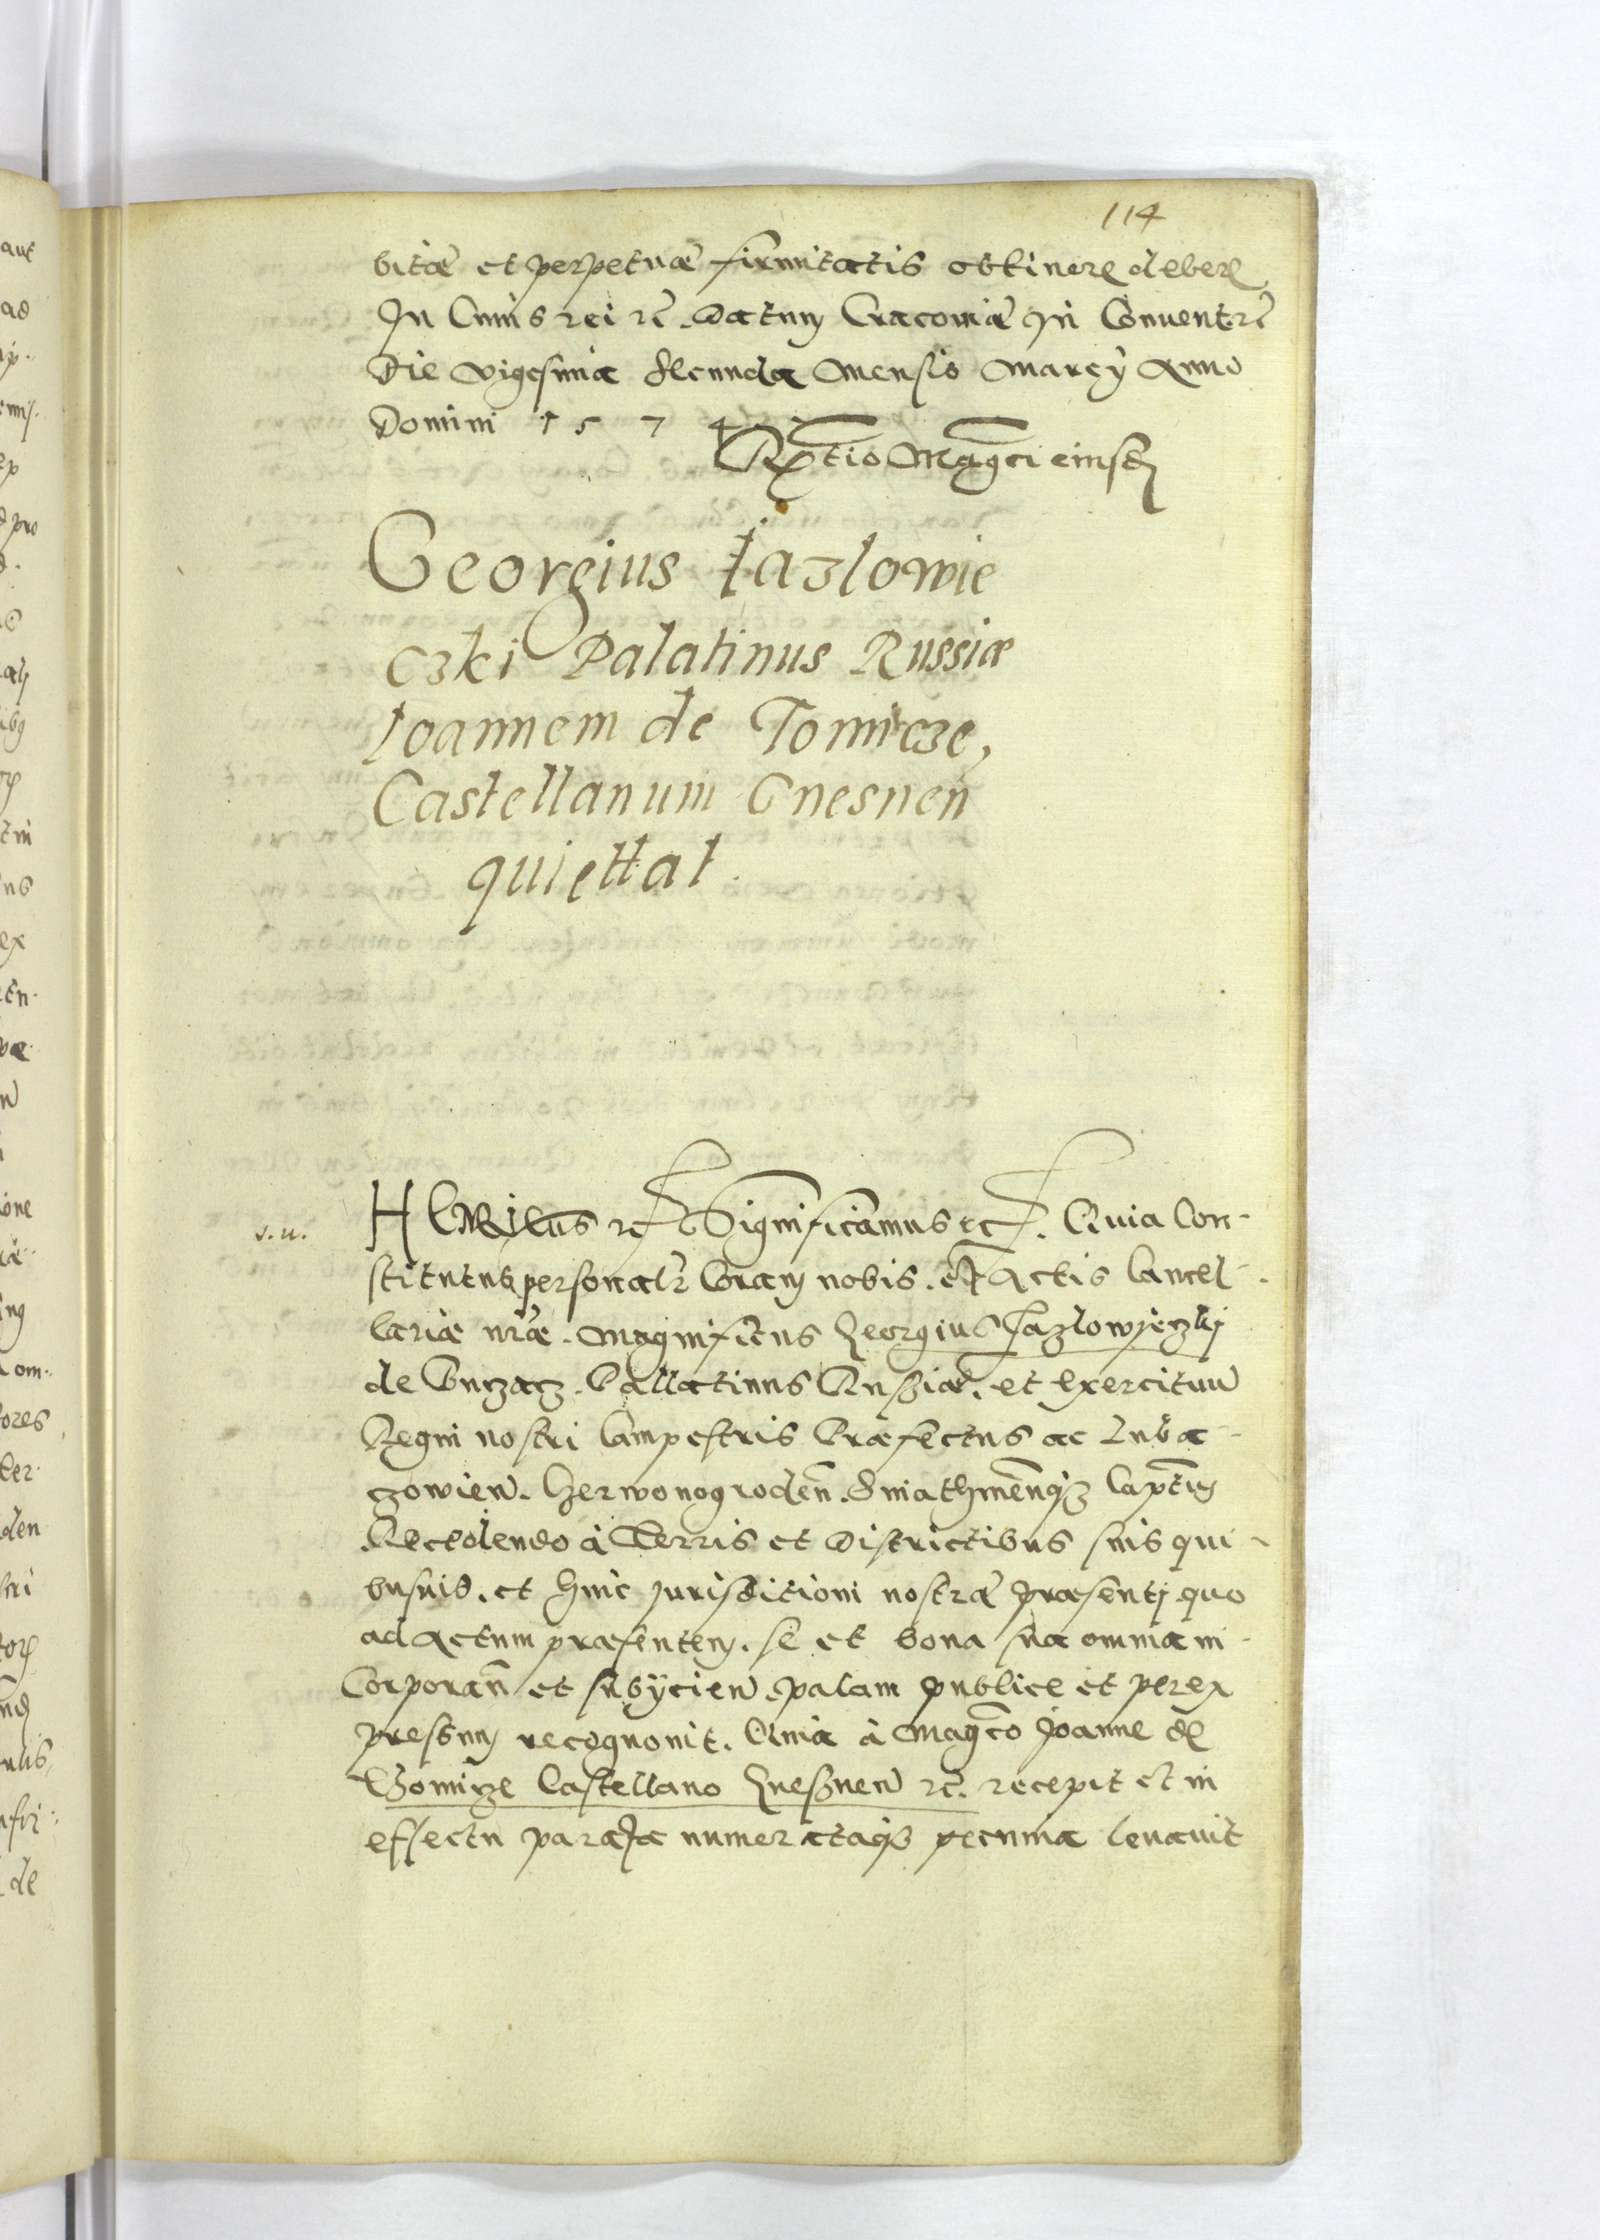 114
bitæ et perpetuæ firmitatis obtinere debere
In Cuius rei rc̃. Datum Cracoviæ In Conuentu rc̃
Die vigesima secunda Mensis Marcÿ Anno
Domini 1574.
Rp̃tio Mag͠ci eiusd
Georgius Iazlowie
czki Palatinus Russiæ
Ioannem de Tomicze,
Castellanum Gnesnen̄
quiettat.
s. u.
HENRICUS rc̃ Significamus etc. Quia Con-
stitutus personalr̃ Coram nobis. et Actis Cancel-
lariæ nr̃æ. Magnificus Georgius Jazlowjeczkj
de Buczacz. Pallatinus Russiæ. et Exercituu
Regni nostri Campestris Præfectus ac Luba-
czowien̄. Czerwonogroden̄. Sniathinen̄qz Capt̄us
Recedendo à Terris et Districtibus suis qui-
busuis. et huic Jurisditioni nostræ præsentj quo
ad Actum præsentem. se et bona sua omnia in-
Corporan̄ et subÿcien̄. palam publice et per ex
pressum recognouit. Quia à Mag͠co Joanne de
Thomicze Castellano Gneznen̄ rc̃. recepit et in
effectu parata numerataqz pecunia leuauit